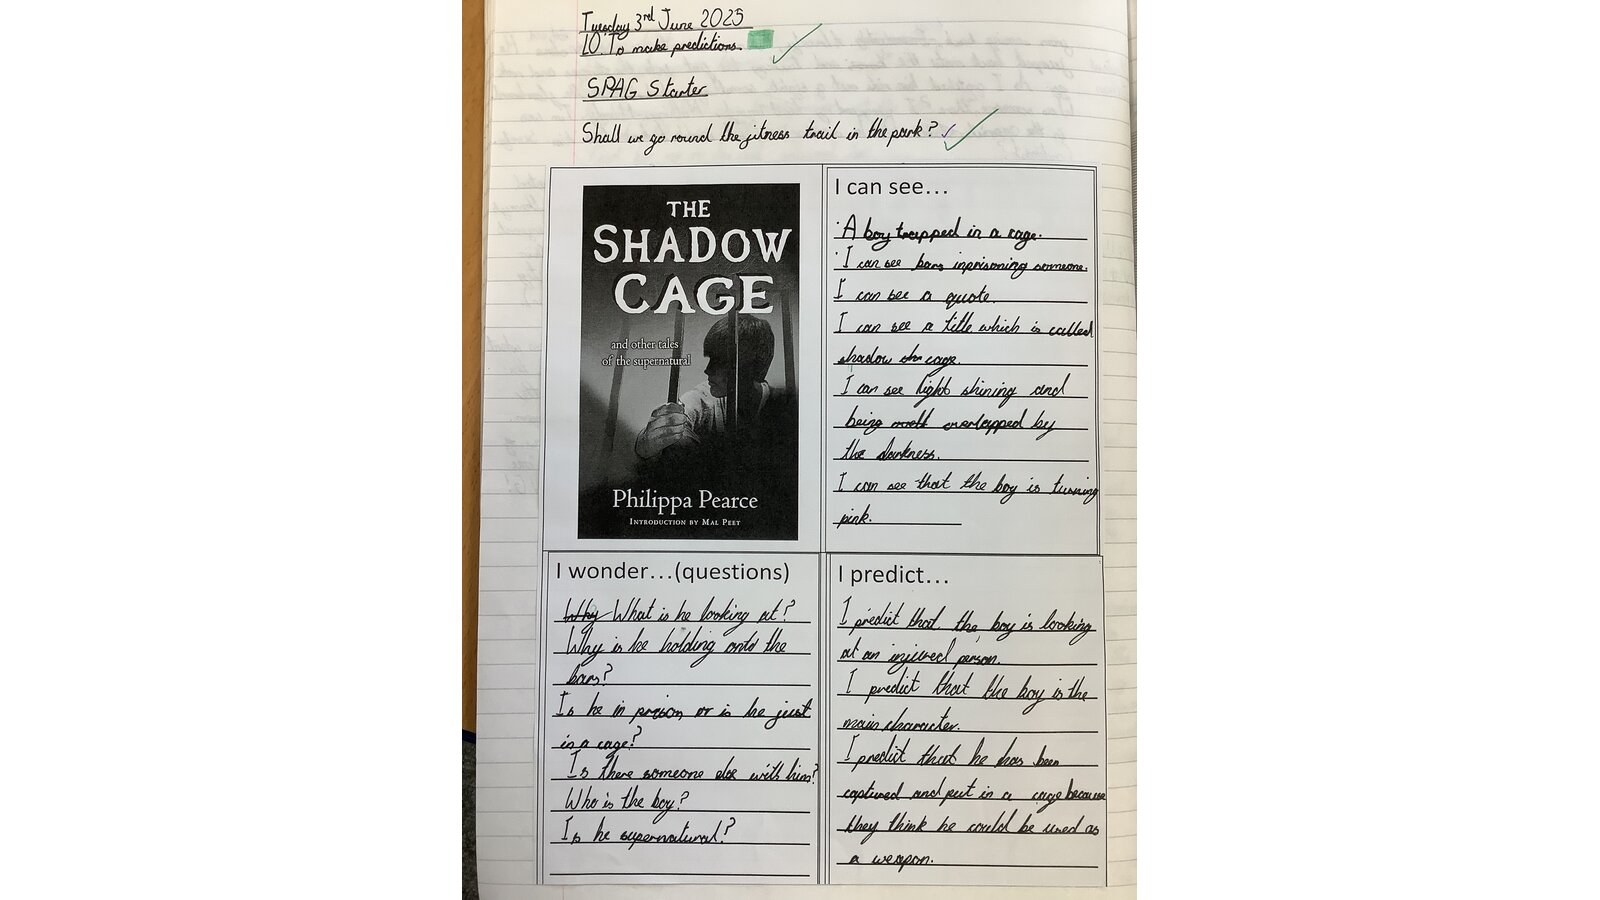 Tuesday 3rd June 2025
LO: To make predictions.
SPAG Starter
Shall we go round the fitness trail in the park?
THE
SHADOW
CAGE
and other tales
of the supernatural
Philippa Pearce
INTRODUCTION BY MAL PEET
I can see...
A boy trapped in a cage.
I can see bars inprisoning someone.
I can see a quote.
I can see a title which is called
shadow cage.
I can see light shining and
being overlapped by
the darkness.
I can see that the boy is turning
pink.
I wonder...(questions)
Why What is he looking at?
Why is he holding onto the
bars?
Is he in prison or is he just
in a cage?
Is there someone else with him?
Who is the boy?
Is he supernatural?
I predict...
I predict that the boy is looking
at an injured person.
I predict that the boy is the
main character.
I predict that he has been
captured and put in a cage because
they think he could be used as
a weapon.